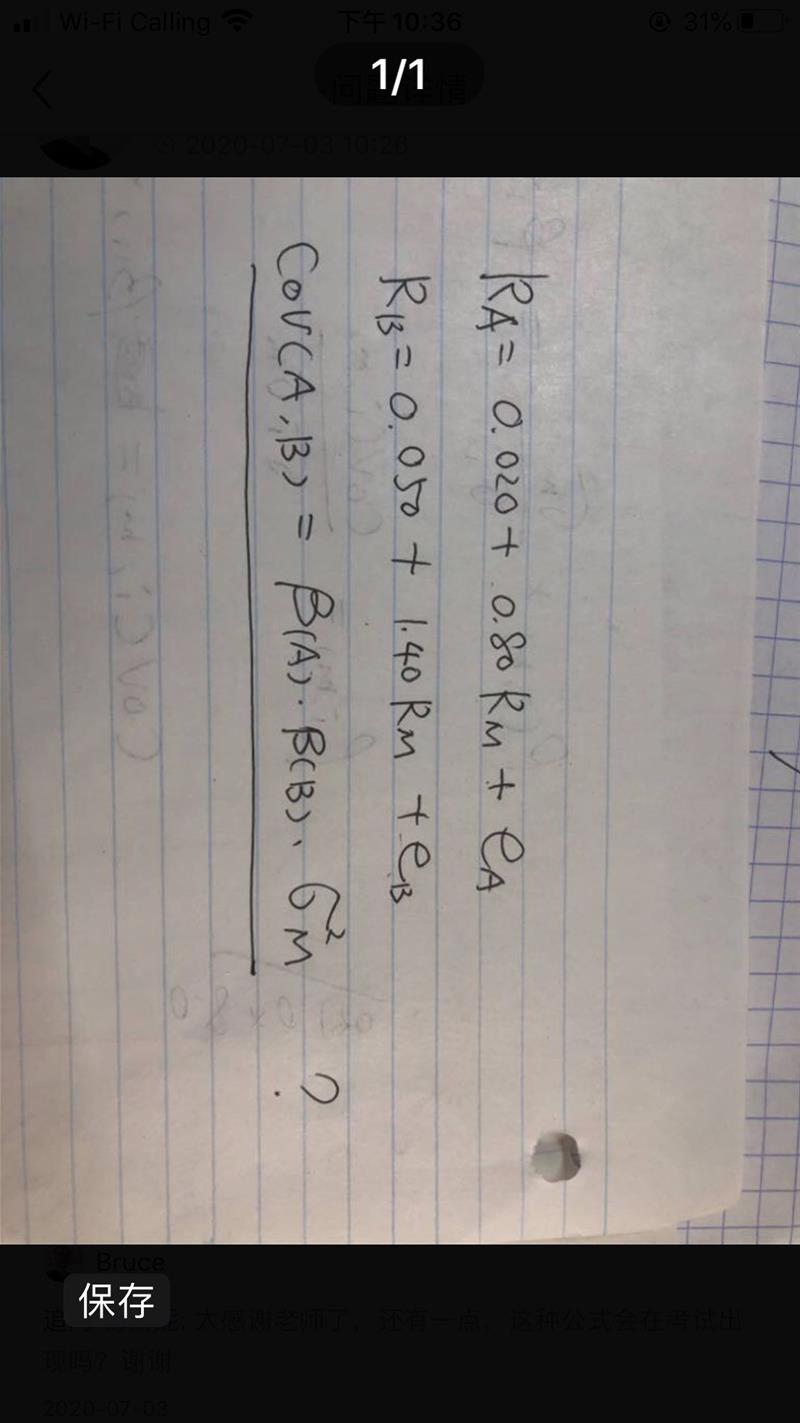 Wi-Fi Calling 下午10:36 31%
1/1
问题详情
2020-07-03 10:26
RA = 0.020 + 0.80 RM + eA
RB = 0.050 + 1.40 RM + eB
Cov(A,B) = β(A)·β(B)·σ²M ?
Bruce
保存
大感谢老师了,还有一点,这种公式会在考试出
现吗?谢谢
2020-07-03